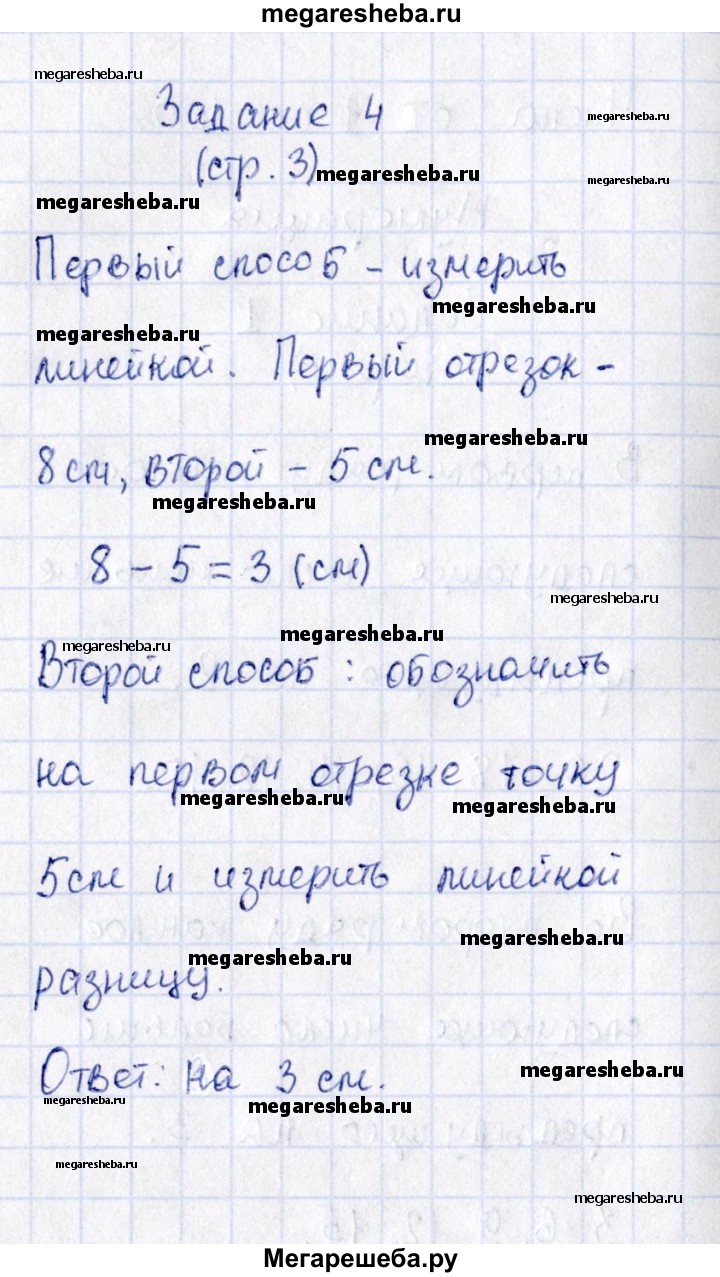 megaresheba.ru
megaresheba.ru
Задание 4
megaresheba.ru
(стр. 3)
megaresheba.ru
megaresheba.ru
megaresheba.ru
Первый способ - измерить
megaresheba.ru
megaresheba.ru
линейкой. Первый отрезок -
megaresheba.ru
8 см, второй - 5 см.
megaresheba.ru
8 - 5 = 3 (см)
megaresheba.ru
megaresheba.ru
megaresheba.ru
Второй способ : обозначить
на первом отрезке точку
megaresheba.ru
megaresheba.ru
5 см и измерить линейкой
megaresheba.ru
megaresheba.ru
разницу.
Ответ: на 3 см.
megaresheba.ru
megaresheba.ru
megaresheba.ru
megaresheba.ru
megaresheba.ru
Мегарешеба.ру